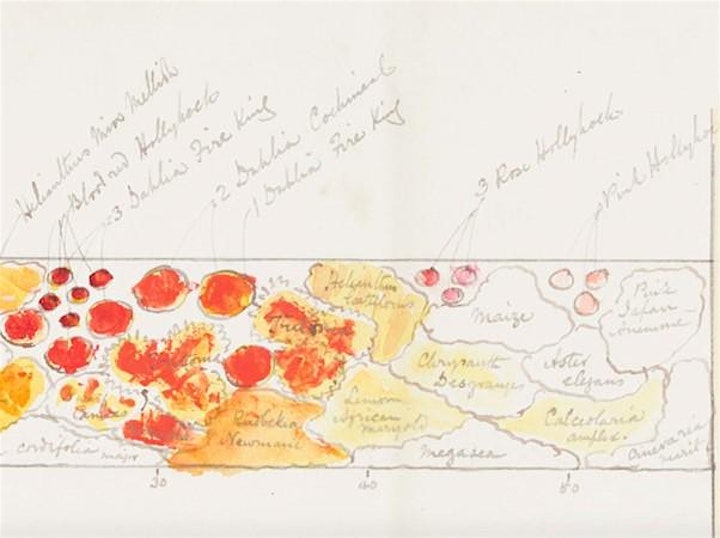 Helianthus Miss Mellish
Blood red Hollyhock
3 Dahlia Fire King
2 Dahlia Cochineal
1 Dahlia Fire King
3 Rose Hollyhock
Pink Hollyho
Helianthus
laetiflorus
Maize
Pink
Japan
Anemone
Tritoma
Chrysanth
Desgranges
Aster
elegans
Cannas
Rudbekia
Newmani
Lemon
African
marigold
Calceolaria
amplex.
cordifolia major
Megasea
Cineraria
marit
30
40
50